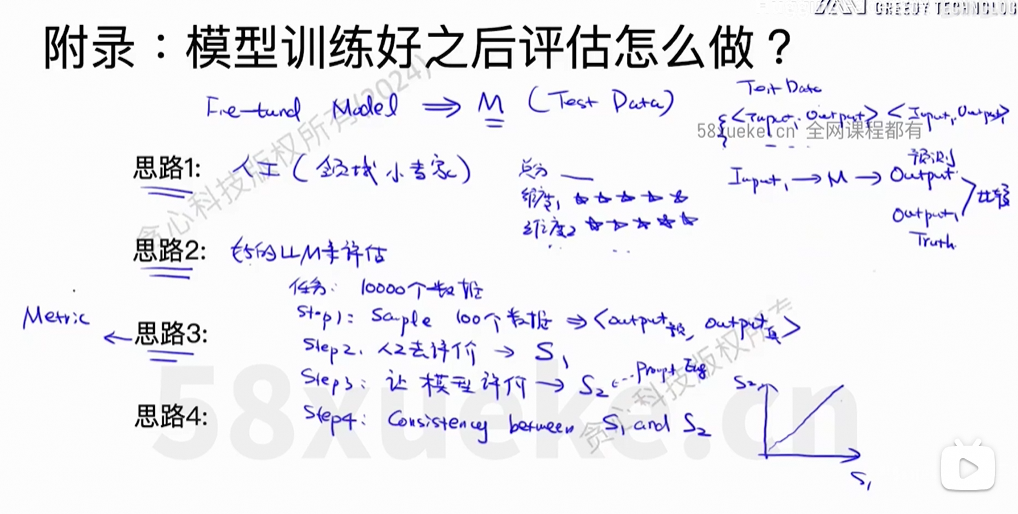 GREEDY TECHNOLOG
附录：模型训练好之后评估怎么做？
Fine-tuned Model ⇒ M (Test Data)
Test Data
{<Input, Output> <Input, Output>
58xueke.cn 全网课程都有
思路1: 人工(领域小专家)
总分
维度1 ☆☆☆☆☆
维度2 ☆☆☆☆☆
Input, → M → Output
预测
Output,
Truth
比较
思路2: 更好的LLM来评估
任务: 10000个数据
Step1: Sample 100个数据 ⇒ <output预, output真>
Metric ← 思路3:
Step2. 人工去评价 → S1
Step3: 让模型评价 → S2 ←... Prompt Eng
思路4:
Step4: Consistency between S1 and S2
S2
S1
贪心科技版权所有(2024)
贪心科技版权所有
58xueke.cn